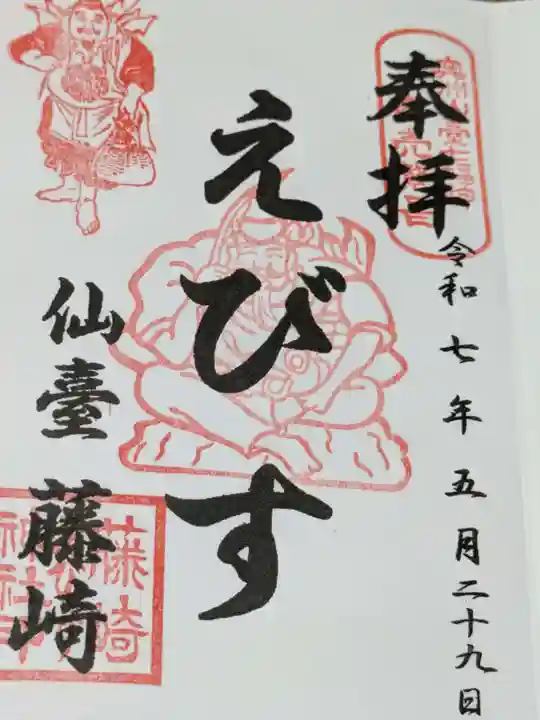 奉拝
令和七年五月二十九日
えびす
仙臺
藤崎
藤崎
神社